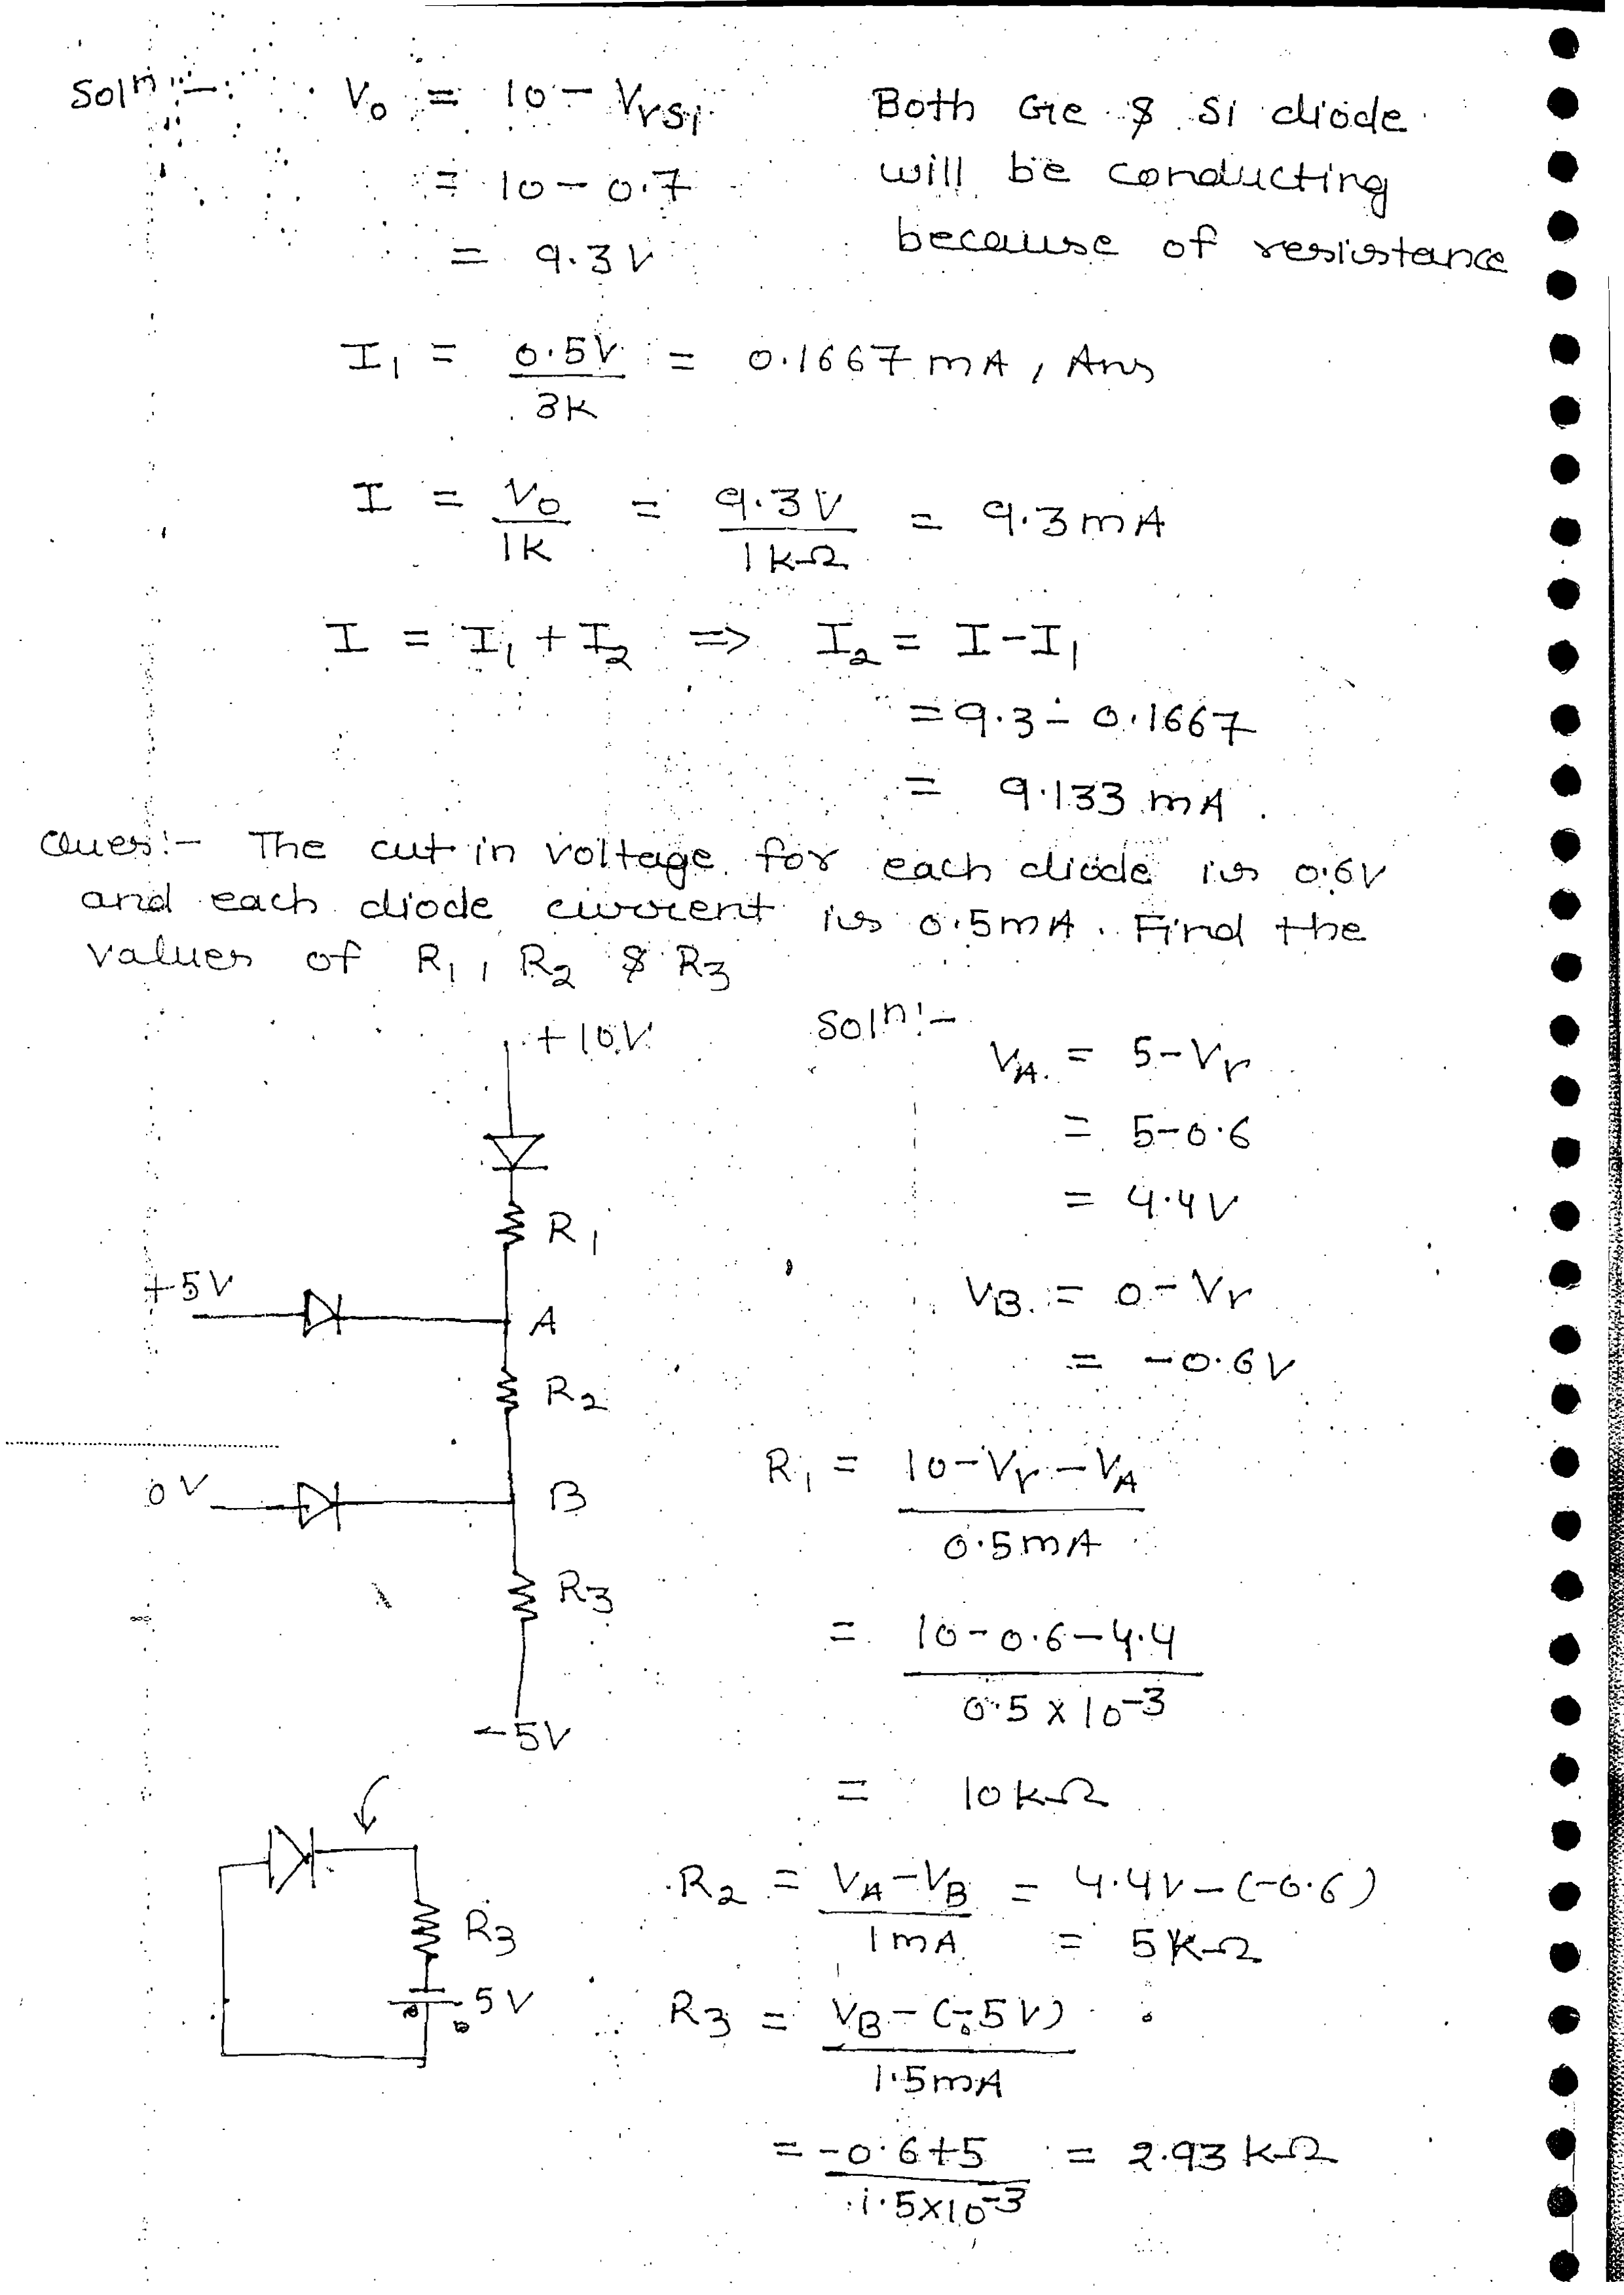 Solⁿ :- V₀ = 10 - VᵣSi
= 10 - 0.7
= 9.3 V
Both Ge & Si diode
will be conducting
because of resistance
I₁ = 0.5V / 3K = 0.1667 mA, Ans
I = V₀ / 1K = 9.3V / 1KΩ = 9.3 mA
I = I₁ + I₂ => I₂ = I - I₁
= 9.3 - 0.1667
= 9.133 mA.
Ques:- The cut in voltage for each diode is 0.6V
and each diode current is 0.5mA. Find the
values of R₁, R₂ & R₃
+10V
R₁
+5V
A
R₂
0V
B
R₃
-5V
R₃
5V
Solⁿ:-
V_A = 5 - Vᵣ
= 5 - 0.6
= 4.4V
V_B = 0 - Vᵣ
= -0.6V
R₁ = 10 - Vᵣ - V_A / 0.5mA
= 10 - 0.6 - 4.4 / 0.5 × 10⁻³
= 10KΩ
R₂ = V_A - V_B / 1mA = 4.4V - (-0.6)
= 5KΩ
R₃ = V_B - (-5V) / 1.5mA
= -0.6+5 / 1.5×10⁻³ = 2.93 KΩ